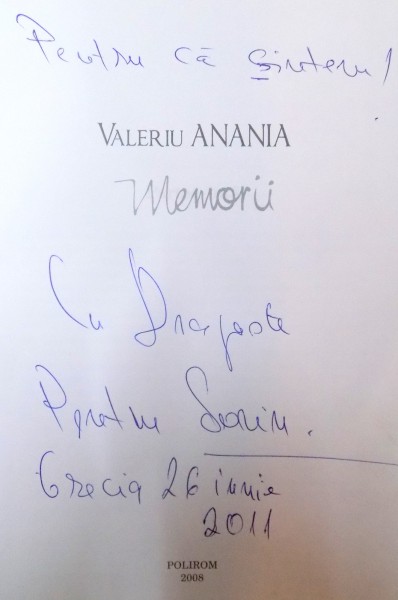 Pentru că sintem!
VALERIU ANANIA
Memorii
Cu Dragoste
Pentru Sorin.
Grecia 26 iunie
2011
POLIROM
2008